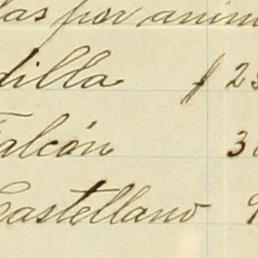 las por anim
dilla $ 25
Falcón 3
Castellano 9